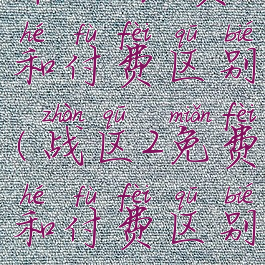 hé fù fèi qū bié
和付费区别
zhàn qū miǎn fèi
(战区2免费
hé fù fèi qū bié
和付费区别